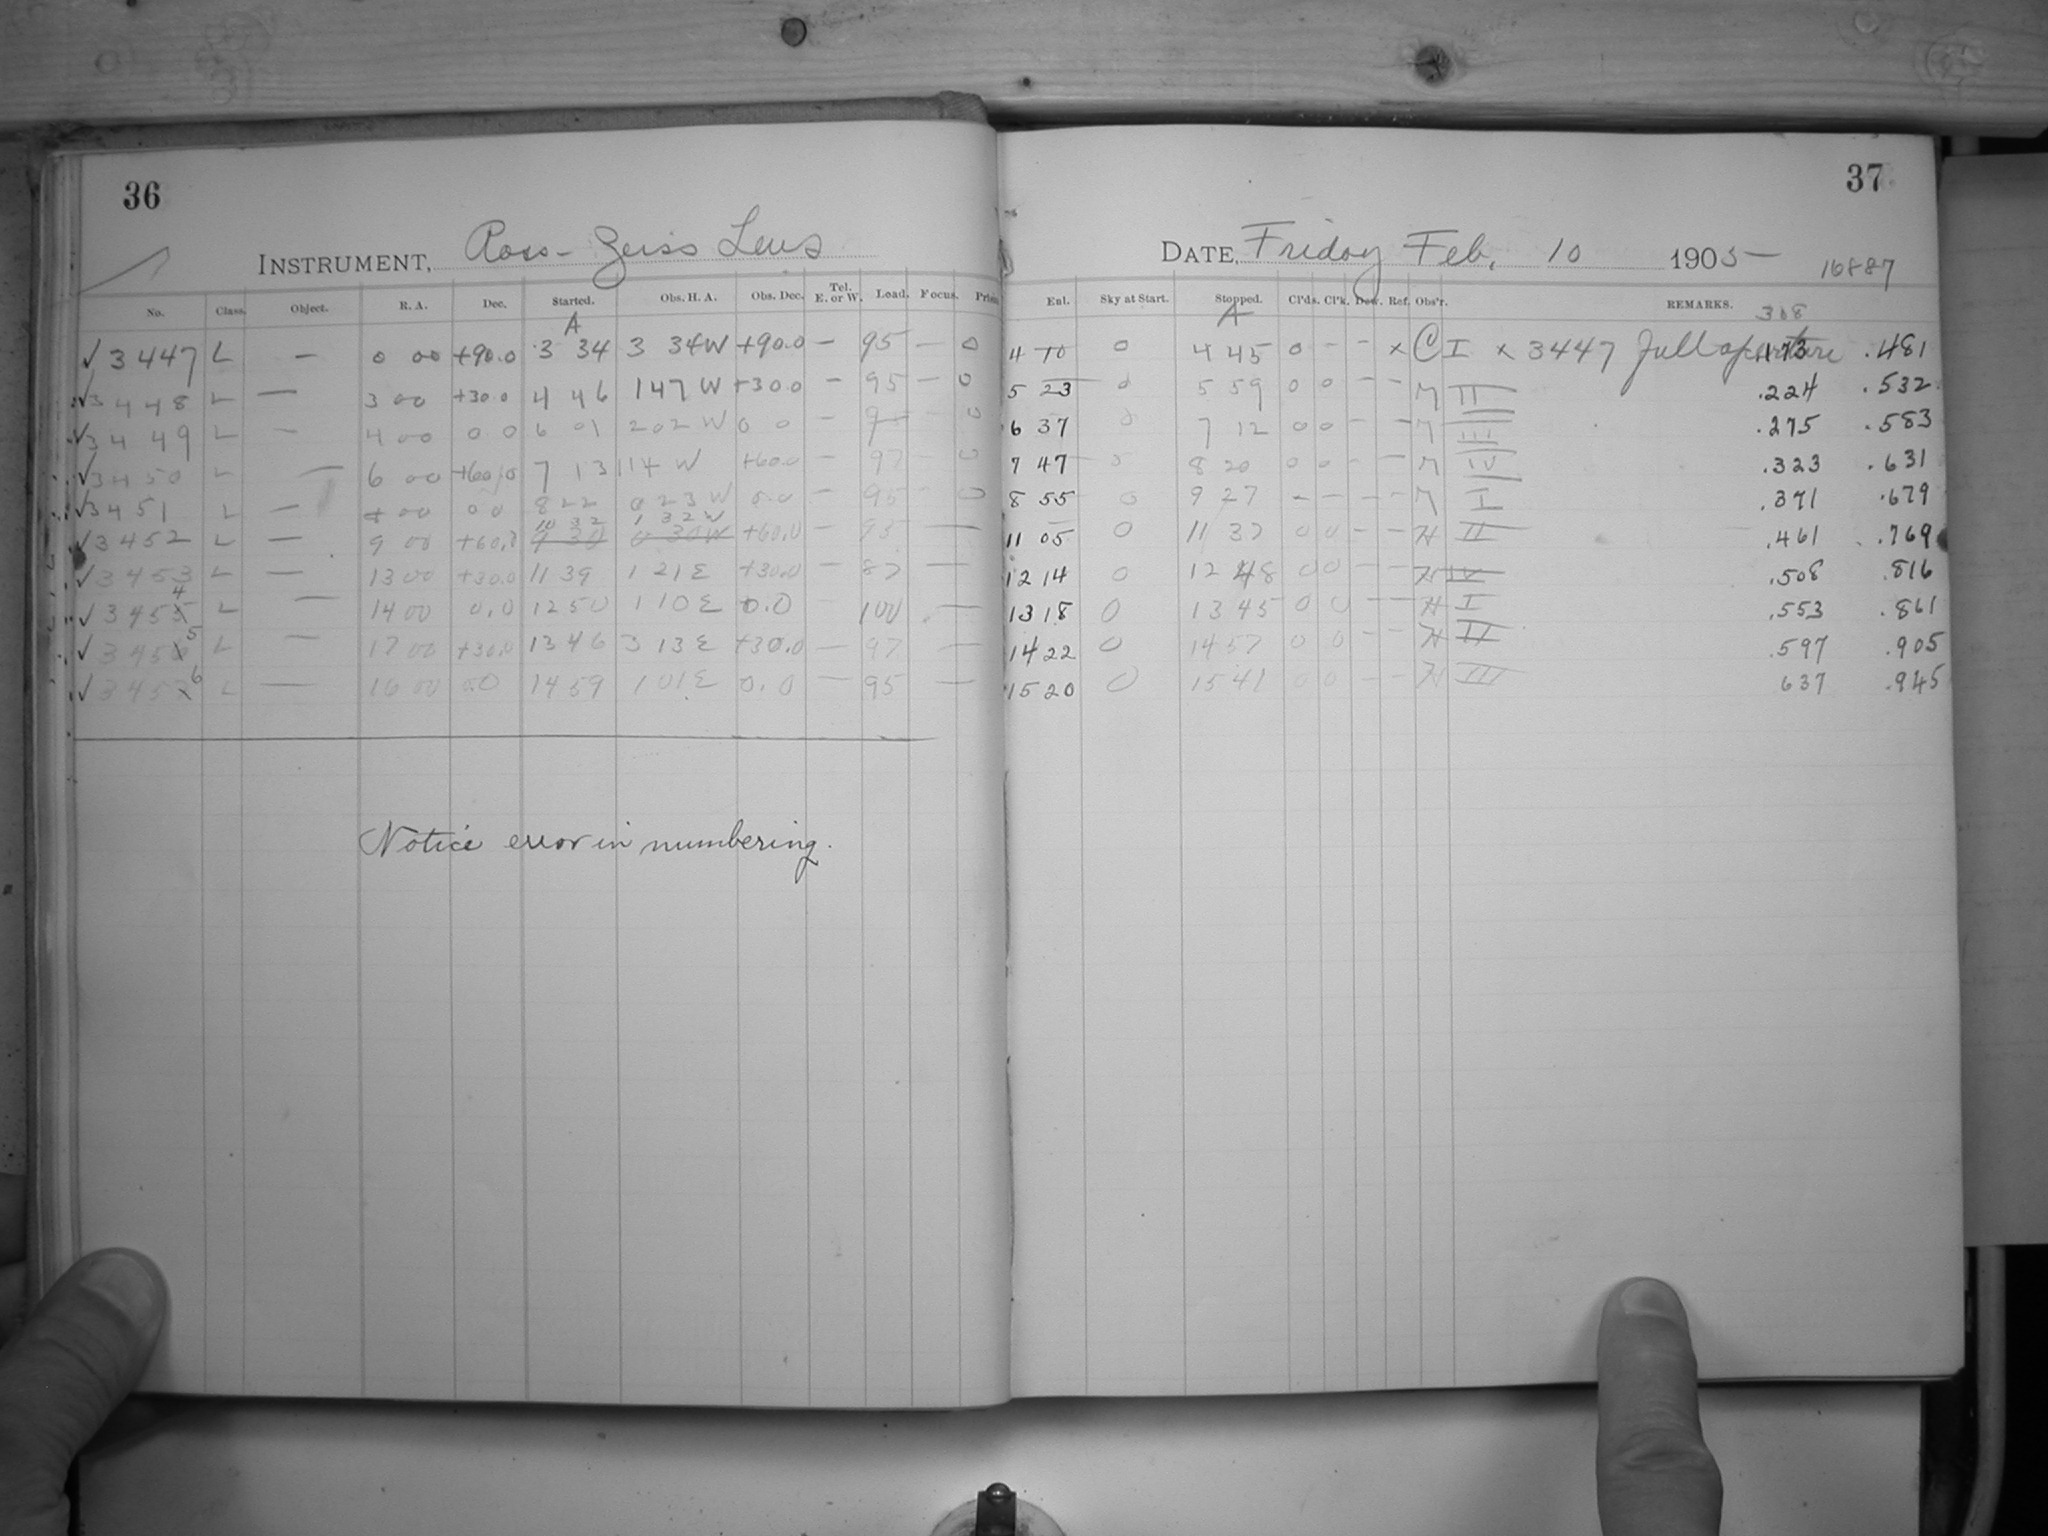 36
INSTRUMENT, Ross-Zeiss Lens
No. Class. Object. R. A. Dec. Started. Obs. H. A. Obs. Dec. Tel. E. or W. Load. Focus.
A
✓3447 L — 0 00 +90.0 3 34 3 34W +90.0 — 95 — 0
✓3448 L — 3 00 +30.0 4 46 1 47 W +30.0 — 95 — 0
✓3449 L — 4 00 0.0 6 01 2 02 W 0 0 — 95 — 0
✓3450 L — 6 00 +60.0 7 13 1 14 W +60.0 — 97 — 0
✓3451 L — 8 00 0 0 8 22 0 23 W 0.0 — 95 — 0
10 32 1 32 W
✓3452 L — 9 00 +60.0 9 30 0 30W +60.0 — 95 —
✓3453 L — 13 00 +30.0 11 39 1 21 E +30.0 — 87 —
4
✓3455 L — 14 00 0.0 12 50 1 10 E 0.0 — 100 —
5
✓3456 L — 17 00 +30.0 13 46 3 13 E +30.0 — 97 —
6
✓3457 L — 16 00 0.0 14 59 1 01 E 0.0 — 95 —
Notice error in numbering.
37
DATE, Friday Feb, 10 1905
16887
Ent. Sky at Start. Stopped. Cl'ds. Cl'k. Dew. Ref. Obs'r. REMARKS.
308
A
4 10 0 4 45 0 - - × C I × 3447 Full aperture .173 .481
5 23 0 5 59 0 0 - - M II .224 .532
6 37 0 7 12 0 0 - - M III .275 .583
7 47 0 8 20 0 0 - - M IV .323 .631
8 55 0 9 27 - - - - M I .371 .679
11 05 0 11 37 0 0 - - H II .461 .769
12 14 0 12 48 0 0 - - H IV .508 .816
13 18 0 13 45 0 0 - - H I .553 .861
14 22 0 14 57 0 0 - - H II .597 .905
15 20 0 15 41 0 0 - - H III 637 .945